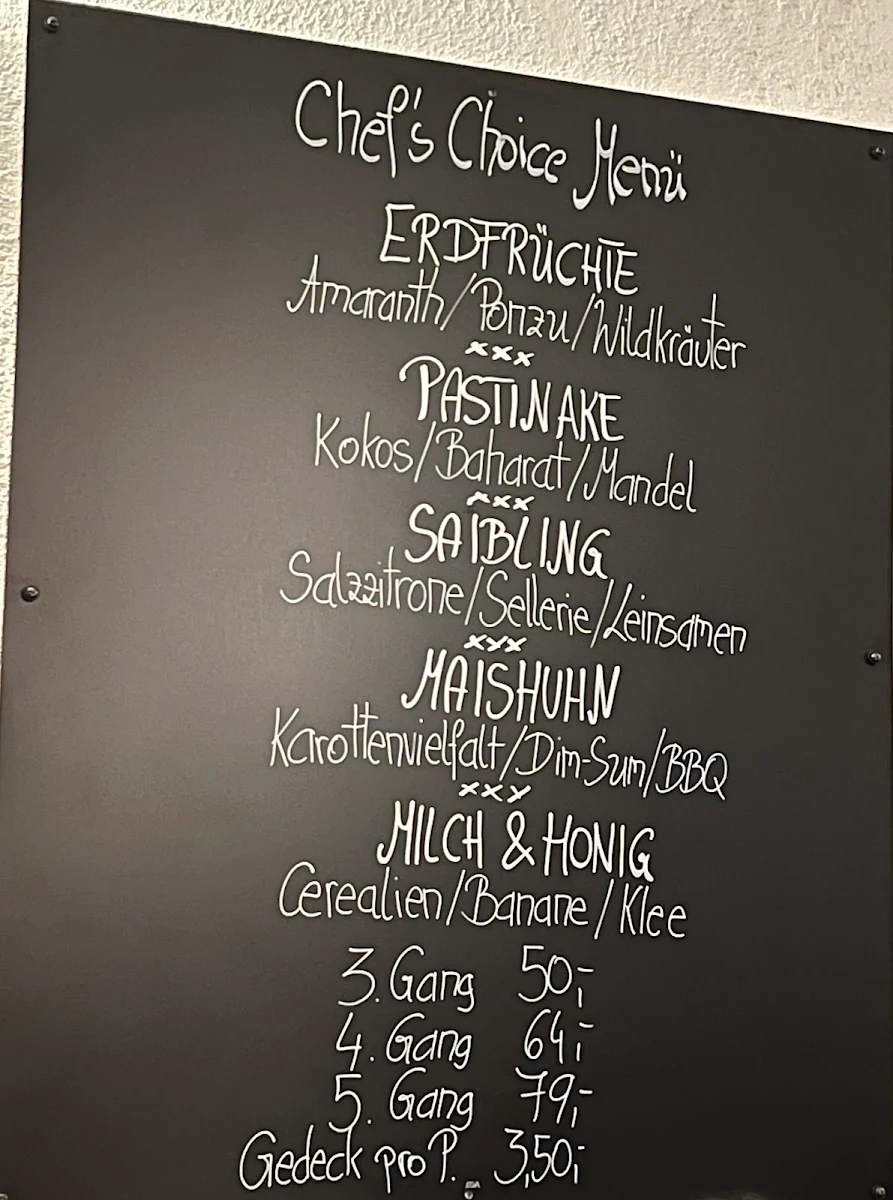 Chef's Choice Menü
ERDFRÜCHTE
Amaranth/Ponzu/Wildkräuter
xxx
PASTINAKE
Kokos/Baharat/Mandel
xxx
SAIBLING
Salzzitrone/Sellerie/Leinsamen
xxx
MAISHUHN
Karottenvielfalt/Dim-Sum/BBQ
xxx
MILCH & HONIG
Cerealien/Banane/Klee
3. Gang 50,-
4. Gang 64,-
5. Gang 79,-
Gedeck pro P. 3,50,-